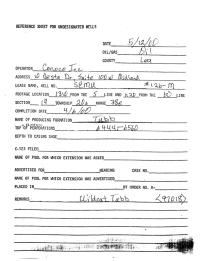 REFERENCE SHEET FOR UNDESIGNATED WELLS
DATE 5/12/00
OIL/GAS Oil
COUNTY Lea
OPERATOR Conoco Inc
ADDRESS 10 Desta Dr. Suite 100W Midland
LEASE NAME, WELL NO. SEMU #126-M
FOOTAGE LOCATION FROM THE S LINE AND FROM THE LINE
SECTION 19 TOWNSHIP 20s RANGE 38e
COMPLETION DATE 4/6/00
NAME OF PRODUCING FORMATION Tubb
TOP OF PERFORATIONS 6444-6560
DEPTH TO CASING SHOE
C-123 FILED
NAME OF POOL FOR WHICH EXTENSION WAS ASKED
ADVERTISED FOR HEARING CASE NO.
NAME OF POOL FOR WHICH EXTENSION WAS ADVERTISED
PLACED IN BY ORDER NO. R-
REMARKS Wildcat Tubb <97018>